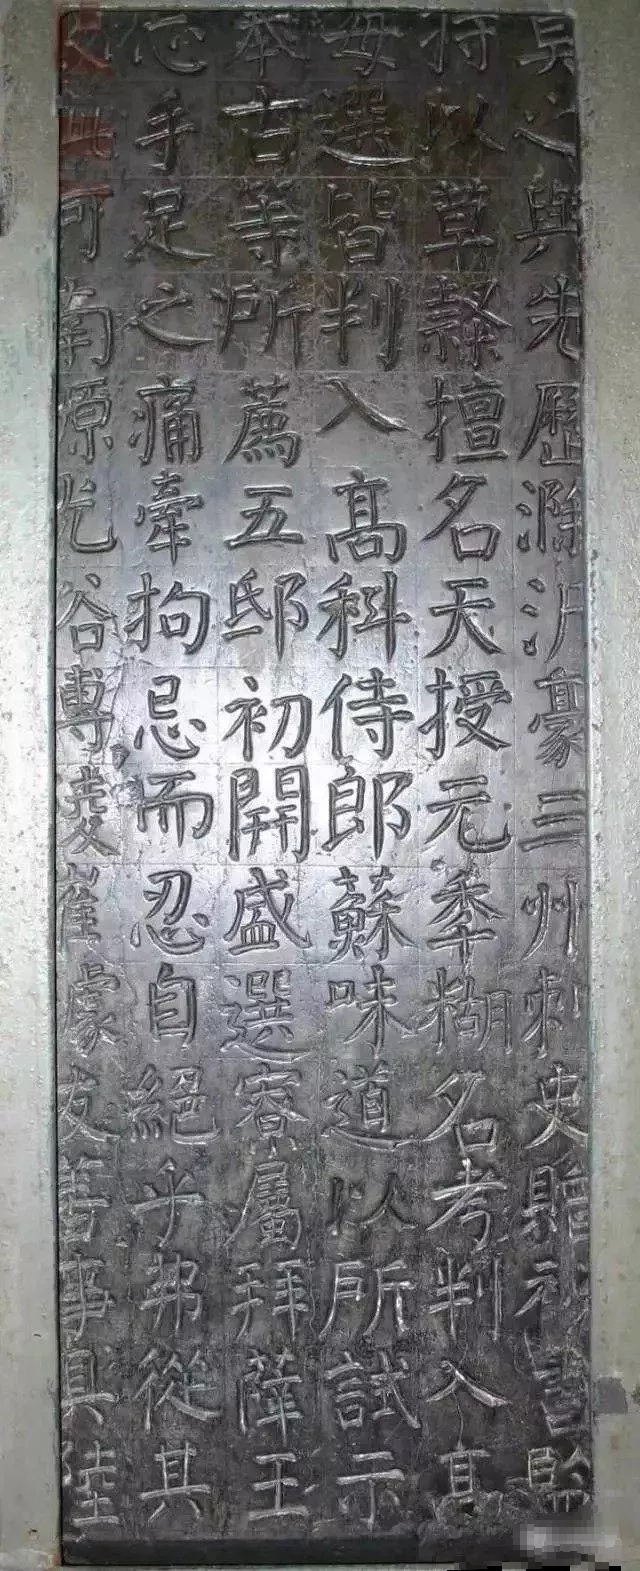 之與先歷滁沂豪三州刺史贈秘書監
特以草隸擅名天授元秊糊名考判入高
每選皆判入高科侍郎蘇味道以所試示
奉古等所薦五邸初開盛選寮屬拜薛王
手足之痛牽拘忌而忍自絕乎弗從其
河南源光裕博陵崔璩友善事具陸